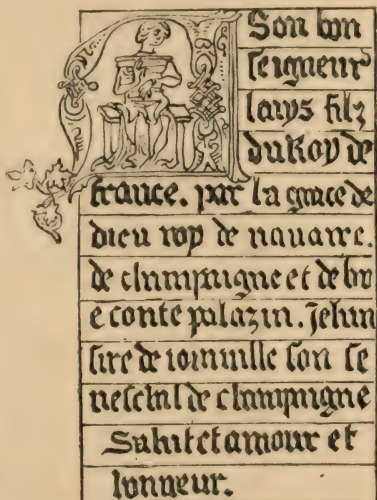 A Son bon
seigneur
looys filz
du Roy de
france. par la grace de
dieu roy de nauarre.
de champaigne et de br
e conte palazin. Jehan
sire de ioinuille son se
neschal de champaigne
Salut et amour et
honneur.